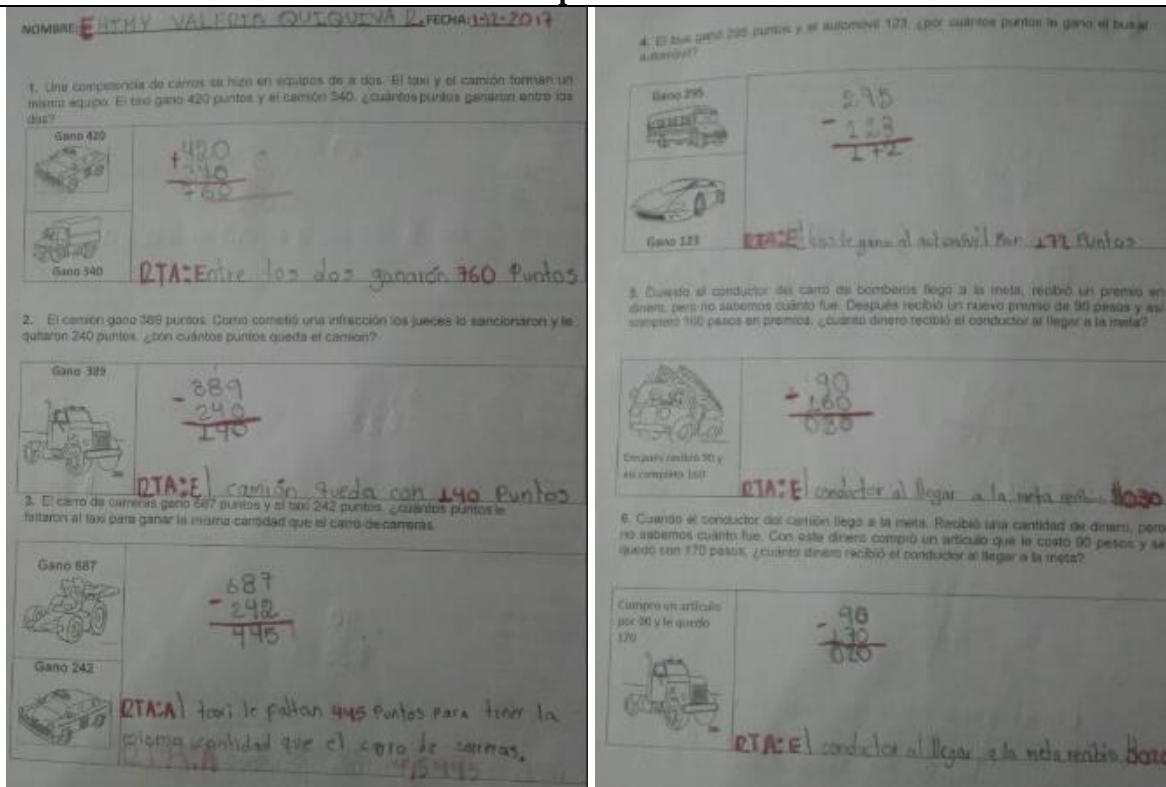 NOMBRE: EHIMY VALERIA QUIQUIVA R. FECHA: 1-12-2017
1. Una competencia de carros se hizo en equipos de a dos. El taxi y el camión forman un
mismo equipo. El taxi gano 420 puntos y el camión 340. ¿cuántos puntos ganaron entre los
dos?
Gano 420
+420
340
760
Gano 340
RTA: Entre los dos ganarón 760 Puntos
2. El camión gano 389 puntos. Como cometió una infracción los jueces lo sancionaron y le
quitaron 240 puntos. ¿con cuántos puntos queda el camión?
Gano 389
-389
240
140
RTA: El camión queda con 140 Puntos
3. El carro de carreras gano 687 puntos y el taxi 242 puntos. ¿cuántos puntos le
faltaron al taxi para ganar la misma cantidad que el carro de carreras
Gano 687
-687
242
445
Gano 242
RTA: Al taxi le faltan 445 Puntos para tener la
misma cantidad que el carro de carreras.
4. El bus gano 295 puntos y el automóvil 123. ¿por cuántos puntos le gano el bus al
automóvil?
Gano 295
-295
123
172
Gano 123
RTA: El le gana al automóvil Por 172 Puntos
5. Cuando el conductor del carro de bomberos llegó a la meta, recibió un premio en
dinero, pero no sabemos cuánto fue. Después recibió un nuevo premio de 90 pesos y así
completó 160 pesos en premios. ¿cuánto dinero recibió el conductor al llegar a la meta?
-90
160
Después recibió 90 y
así completo 160
RTA: El conductor al llegar a la meta
6. Cuando el conductor del camión llegó a la meta. Recibió una cantidad de dinero, pero
no sabemos cuánto fue. Con este dinero compró un artículo que le costó 90 pesos y se
quedó con 170 pesos. ¿cuánto dinero recibió el conductor al llegar a la meta?
Compro un artículo
por 90 y le quedo
170
-90
170
020
RTA: El conductor al llegar a la meta recibio